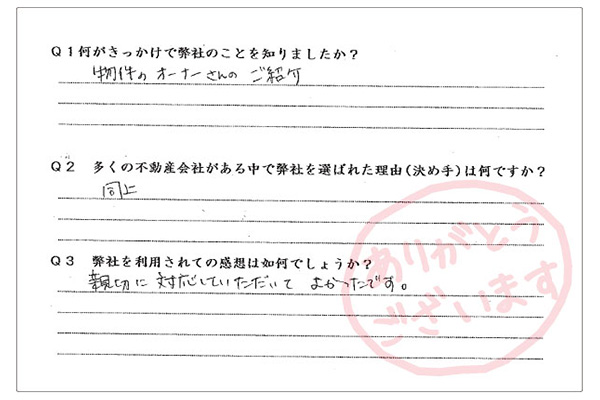 Q1何がきっかけで弊社のことを知りましたか？
物件のオーナーさんのご紹介
Q2 多くの不動産会社がある中で弊社を選ばれた理由(決め手)は何ですか？
同上
Q3 弊社を利用されての感想は如何でしょうか？
親切に対応していただいてよかったです。
ありがとう
ございます